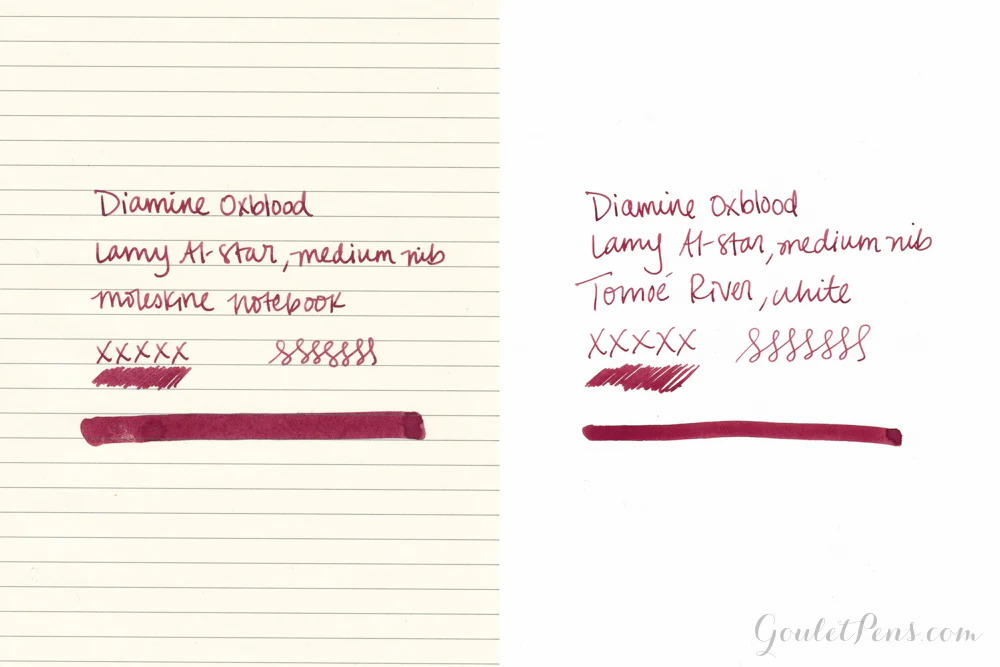 Diamine Oxblood
Lamy Al-Star, medium nib
moleskine notebook
xxxxx sssssss
Diamine Oxblood
Lamy Al-Star, medium nib
Tomoé River, white
xxxxx sssssss
GouletPens.com